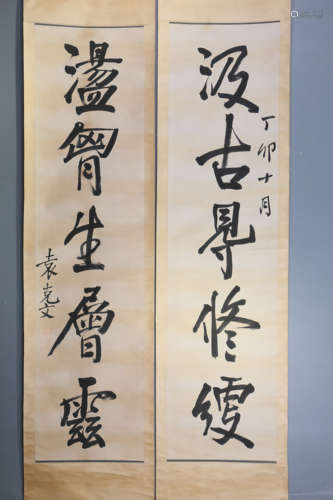 汲古㝵修綆
丁卯十月
盪胷生層雲
袁克文